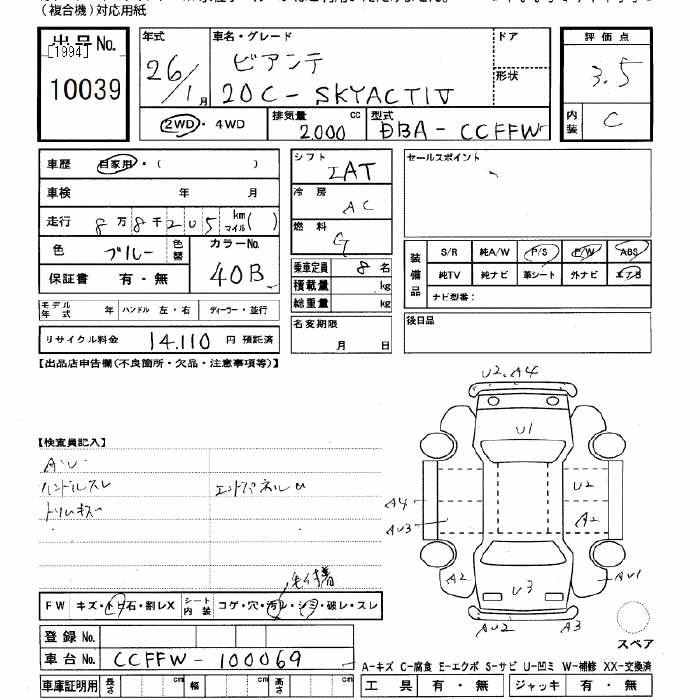 (複合機)対応用紙
出品No.
[1994]
10039
年式
26/1月
車名・グレード
ビアンテ
20C-SKYACTIV
ドア
形状
評価点
3.5
内装
C
2WD・4WD
排気量
2000 cc
型式
DBA-CCFFW
車歴 自家用・( )
車検 年 月
走行 8万8千205 km マイル( )
色 ブルー 色替
カラーNo.
40B
保証書 有・無
シフト
IAT
冷房
AC
燃料
G
乗車定員 8名
積載量 kg
総重量 kg
名変期限
月 日
セールスポイント
装備品
S/R 純A/W P/S P/W ABS
純TV 純ナビ 革シート 外ナビ エアB
ナビ型番:
後日品
モデル年式 年 ハンドル 左・右 ディーラー・並行
リサイクル料金 14.110 円 預託済
【出品店申告欄(不良箇所・欠品・注意事項等)】
【検査員記入】
AU
ハンドルスレ
エンドパネルU
トリムキズ
U2.A4
U1
U2
A4
A2
AU3
A2
U3
AU1
AU2
A3
スペア
毛付着
FW キズ・トビ石・割レX
シート内装 コゲ・穴・汚レ・シミ・破レ・スレ
登録No.
車台No. CCFFW-100069
車庫証明用 長さ cm 幅 cm 高さ cm
A-キズ C-腐食 E-エクボ S-サビ U-凹ミ W-補修 XX-交換済
工具 有・無 ジャッキ 有・無